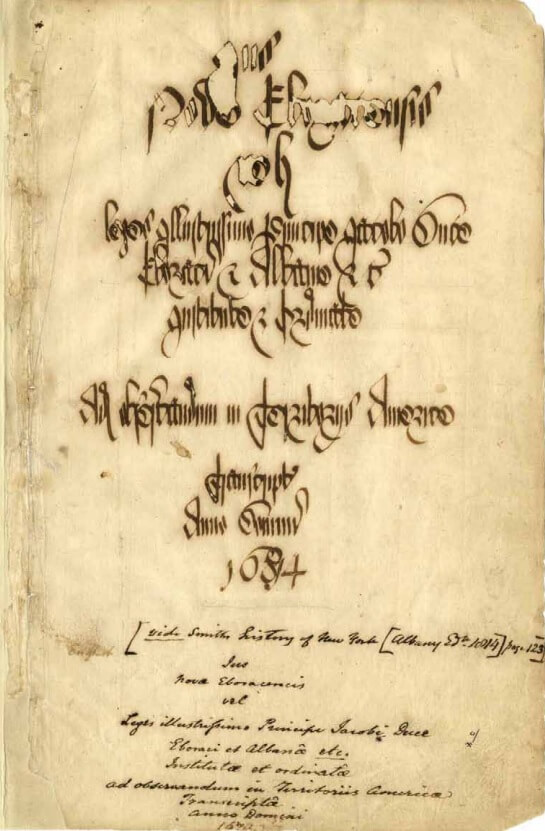 Jus
Novæ Eboracensis
vel
Leges Illustrissimo Principe Jacobo Duce
Eboraci & Albaniæ & c
Institutæ & Ordinatæ
Ad observandum in Territoriis Americæ
Transcriptæ
Anno Domini
1674
[vide Smiths History of New York [Albany Edn. 1814] page 123
Jus
Novæ Eboracencis
vel
Leges illustrissimo Principi Jacobi Duce
Eboraci et Albanâ etc.
Institutæ et ordinatæ
ad observandum in Territoriis Americæ
Transcriptæ
Anno Domini